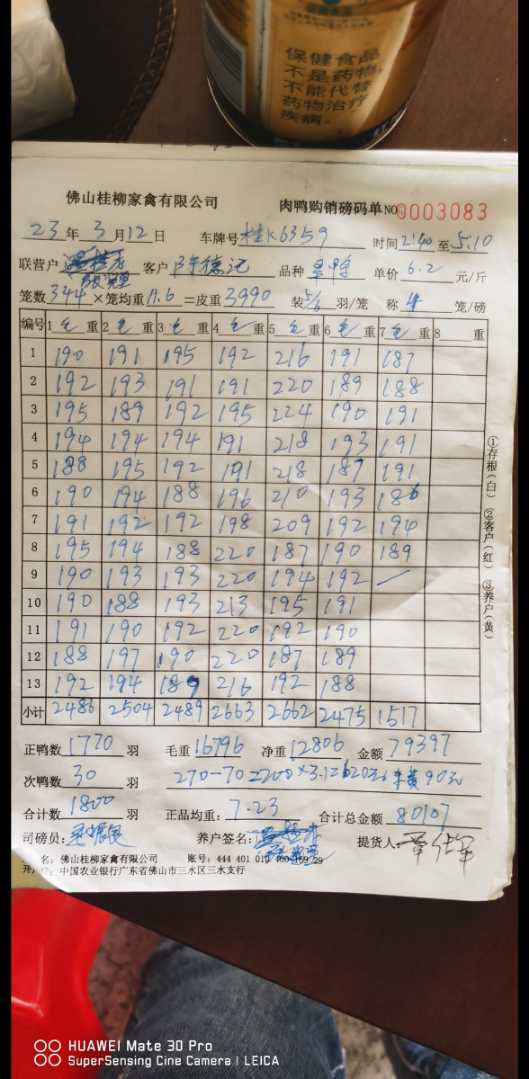 保健食品
不是药物,
不能代替
药物治疗
疾病。
佛山桂柳家禽有限公司 肉鸭购销磅码单 NO 0003083
23年3月12日 车牌号 桂K6359 时间 2:40 至 5.10
联营户 客户 陈德记 品种 单价 6.2 元/斤
笼数 344 × 笼均重 11.6 = 皮重 3990 装 5/6 羽/笼 称 4 笼/磅
编号 1 毛 重 2 毛 重 3 毛 重 4 毛 重 5 毛 重 6 毛 重 7 毛 重 8 重
1 190 191 195 192 216 191 187
2 192 193 191 191 220 189 188
3 195 189 192 195 224 190 191
4 194 194 194 191 218 193 191
5 188 195 192 191 218 187 191
6 190 194 188 196 210 193 186
7 191 192 192 198 209 192 194
8 195 194 188 220 187 190 189
9 190 193 193 220 194 192 —
10 190 188 193 213 195 191
11 191 190 192 220 192 190
12 188 197 190 220 187 189
13 192 194 189 216 192 188
小计 2486 2504 2489 2663 2662 2475 1517
①存根(白) ②客户(红) ③养户(黄)
正鸭数 1770 羽 毛重 16796 净重 12806 金额 79397
次鸭数 30 羽 270-70=200×3.1=620元 90元
合计数 1800 羽 正品均重: 7.23 合计总金额 80107
司磅员: 养户签名: 提货人
名: 佛山桂柳家禽有限公司 账号: 444 401 01
开户行: 中国农业银行广东省佛山市三水区三水支行
HUAWEI Mate 30 Pro
SuperSensing Cine Camera | LEICA